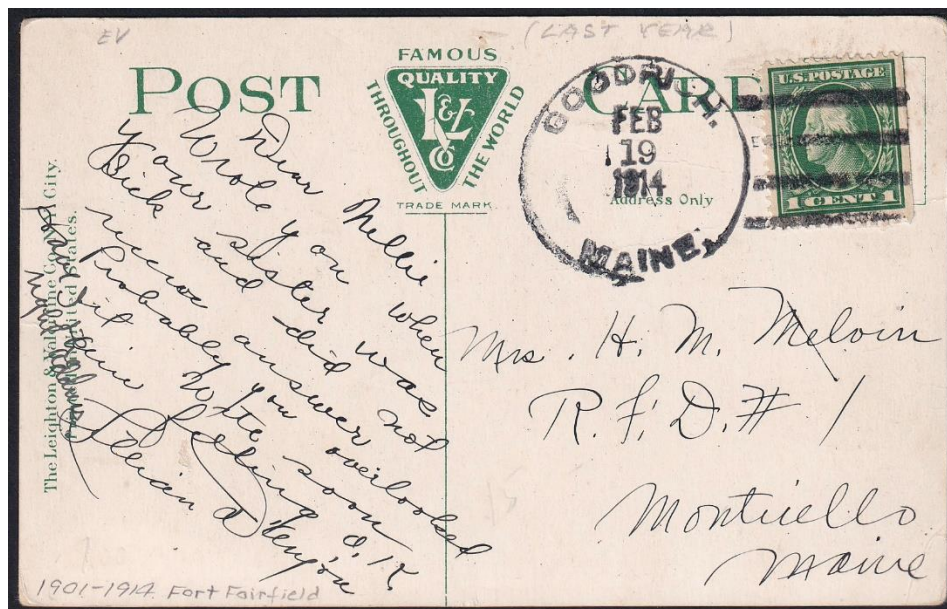 EV
(LAST YEAR)
POST CARD
FAMOUS
QUALITY
L&V
CO
THROUGHOUT
THE WORLD
TRADE MARK
GOODRICH.
FEB
19
1914
MAINE.
U.S. POSTAGE
1 CENT 1
Address Only
The Leighton & Valentine Co., N.Y. City.
United States.
Dear Nellie
Wrote you when
your sister was
sick and did not
recieve answer
Probably you overlooked
it Write soon
am feeling O.K.
Lillian D Kenyon
Mrs. H. M. Melvin
R.F.D. # 1
Monticello
Maine
1901-1914 Fort Fairfield